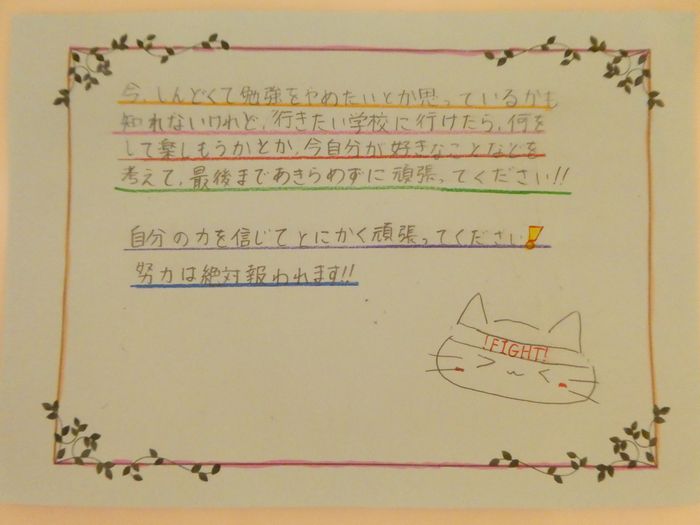 今、しんどくて勉強をやめたいとか思っているかも
知れないけれど、行きたい学校に行けたら、何を
して楽しもうかとか、今自分が好きなことなどを
考えて、最後まであきらめずに頑張ってください!!
自分の力を信じてとにかく頑張ってください!
努力は絶対報われます!!
!FIGHT!